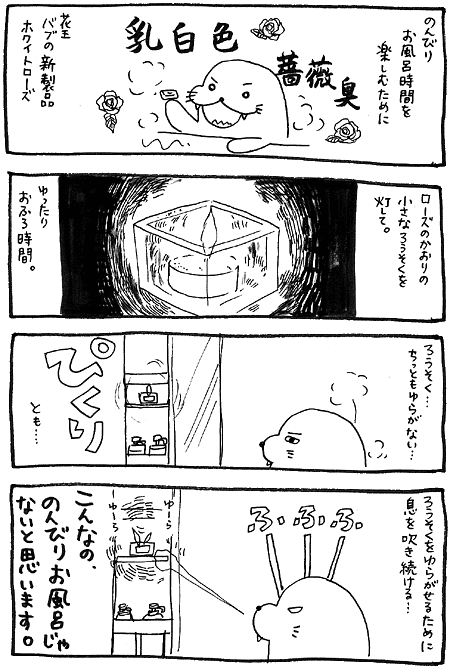 のんびり
お風呂時間を
楽しむために
乳白色
薔薇臭
花王
バブの新製品
ホワイトローズ
ローズのかおりの
小さなろうそくを
灯して。
ゆったり
おふろ時間。
ろうそく…
ちっともゆらがない…
ぴくり
とも…
ろうそくをゆらがせるために
息を吹き続ける…
ふ・ふ・ふ・
ゆ〜ら
ゆ〜ら
こんなの、
のんびりお風呂じゃ
ないと思います。